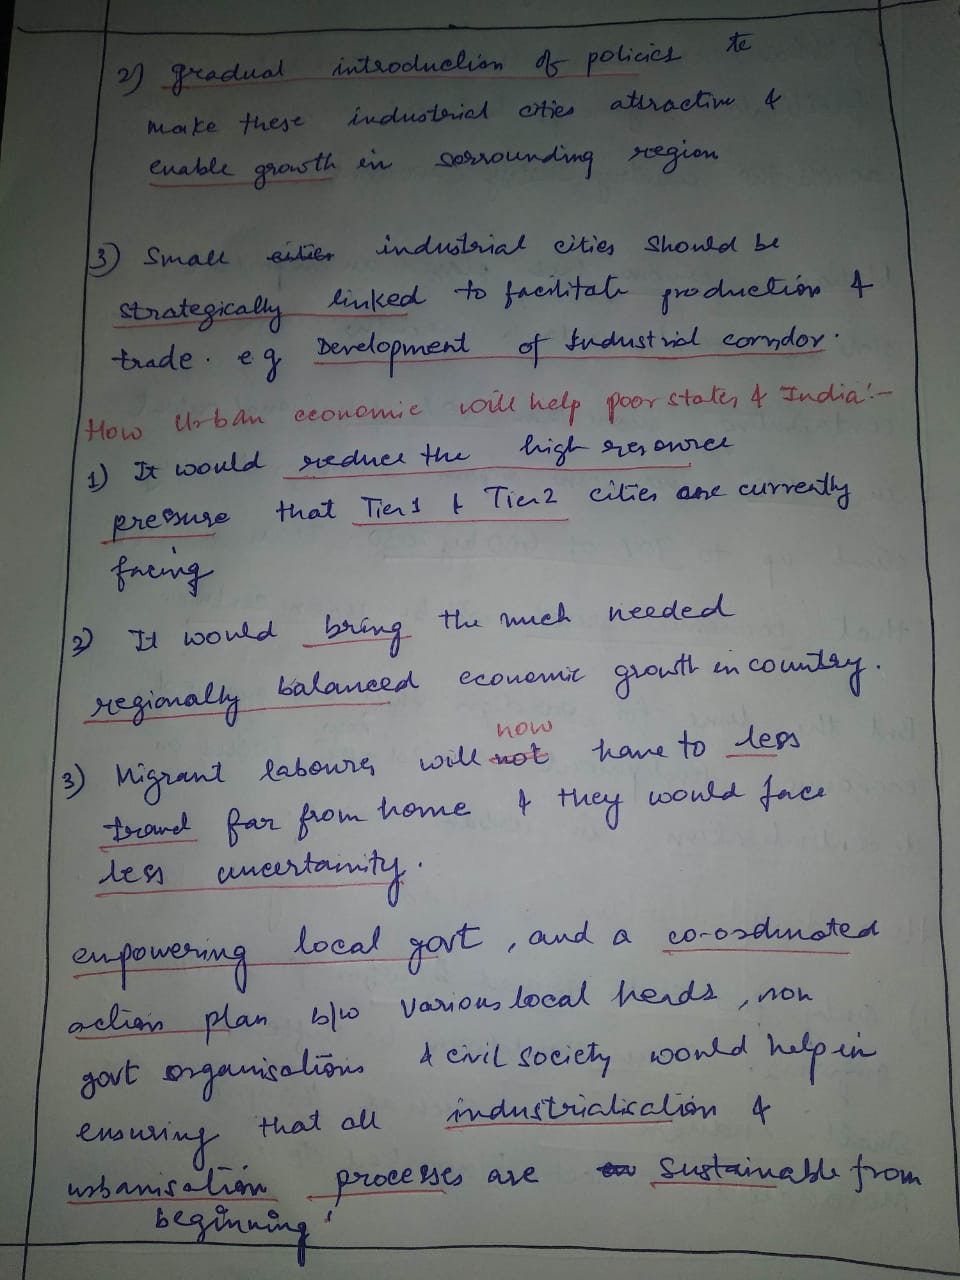 2) gradual introduction of policies to
make these industrial cities attractive &
enable growth in sorrounding region
3) Small cities industrial cities should be
strategically linked to facilitate production &
trade. eg Development of Industrial corridor.
How Urban economic will help poor states & India:-
1) It would reduce the high resource
pressure that Tier 1 & Tier 2 cities are currently
facing
2) It would bring the much needed
regionally balanced economic growth in country.
now
3) Migrant labours will not have to less
travel far from home & they would face
less uncertainity.
empowering local govt, and a co-ordinated
action plan b/w various local heads, non
govt organisations & civil society would help in
ensuring that all industrialisation &
urbanisation processes are sustainable from
beginning.